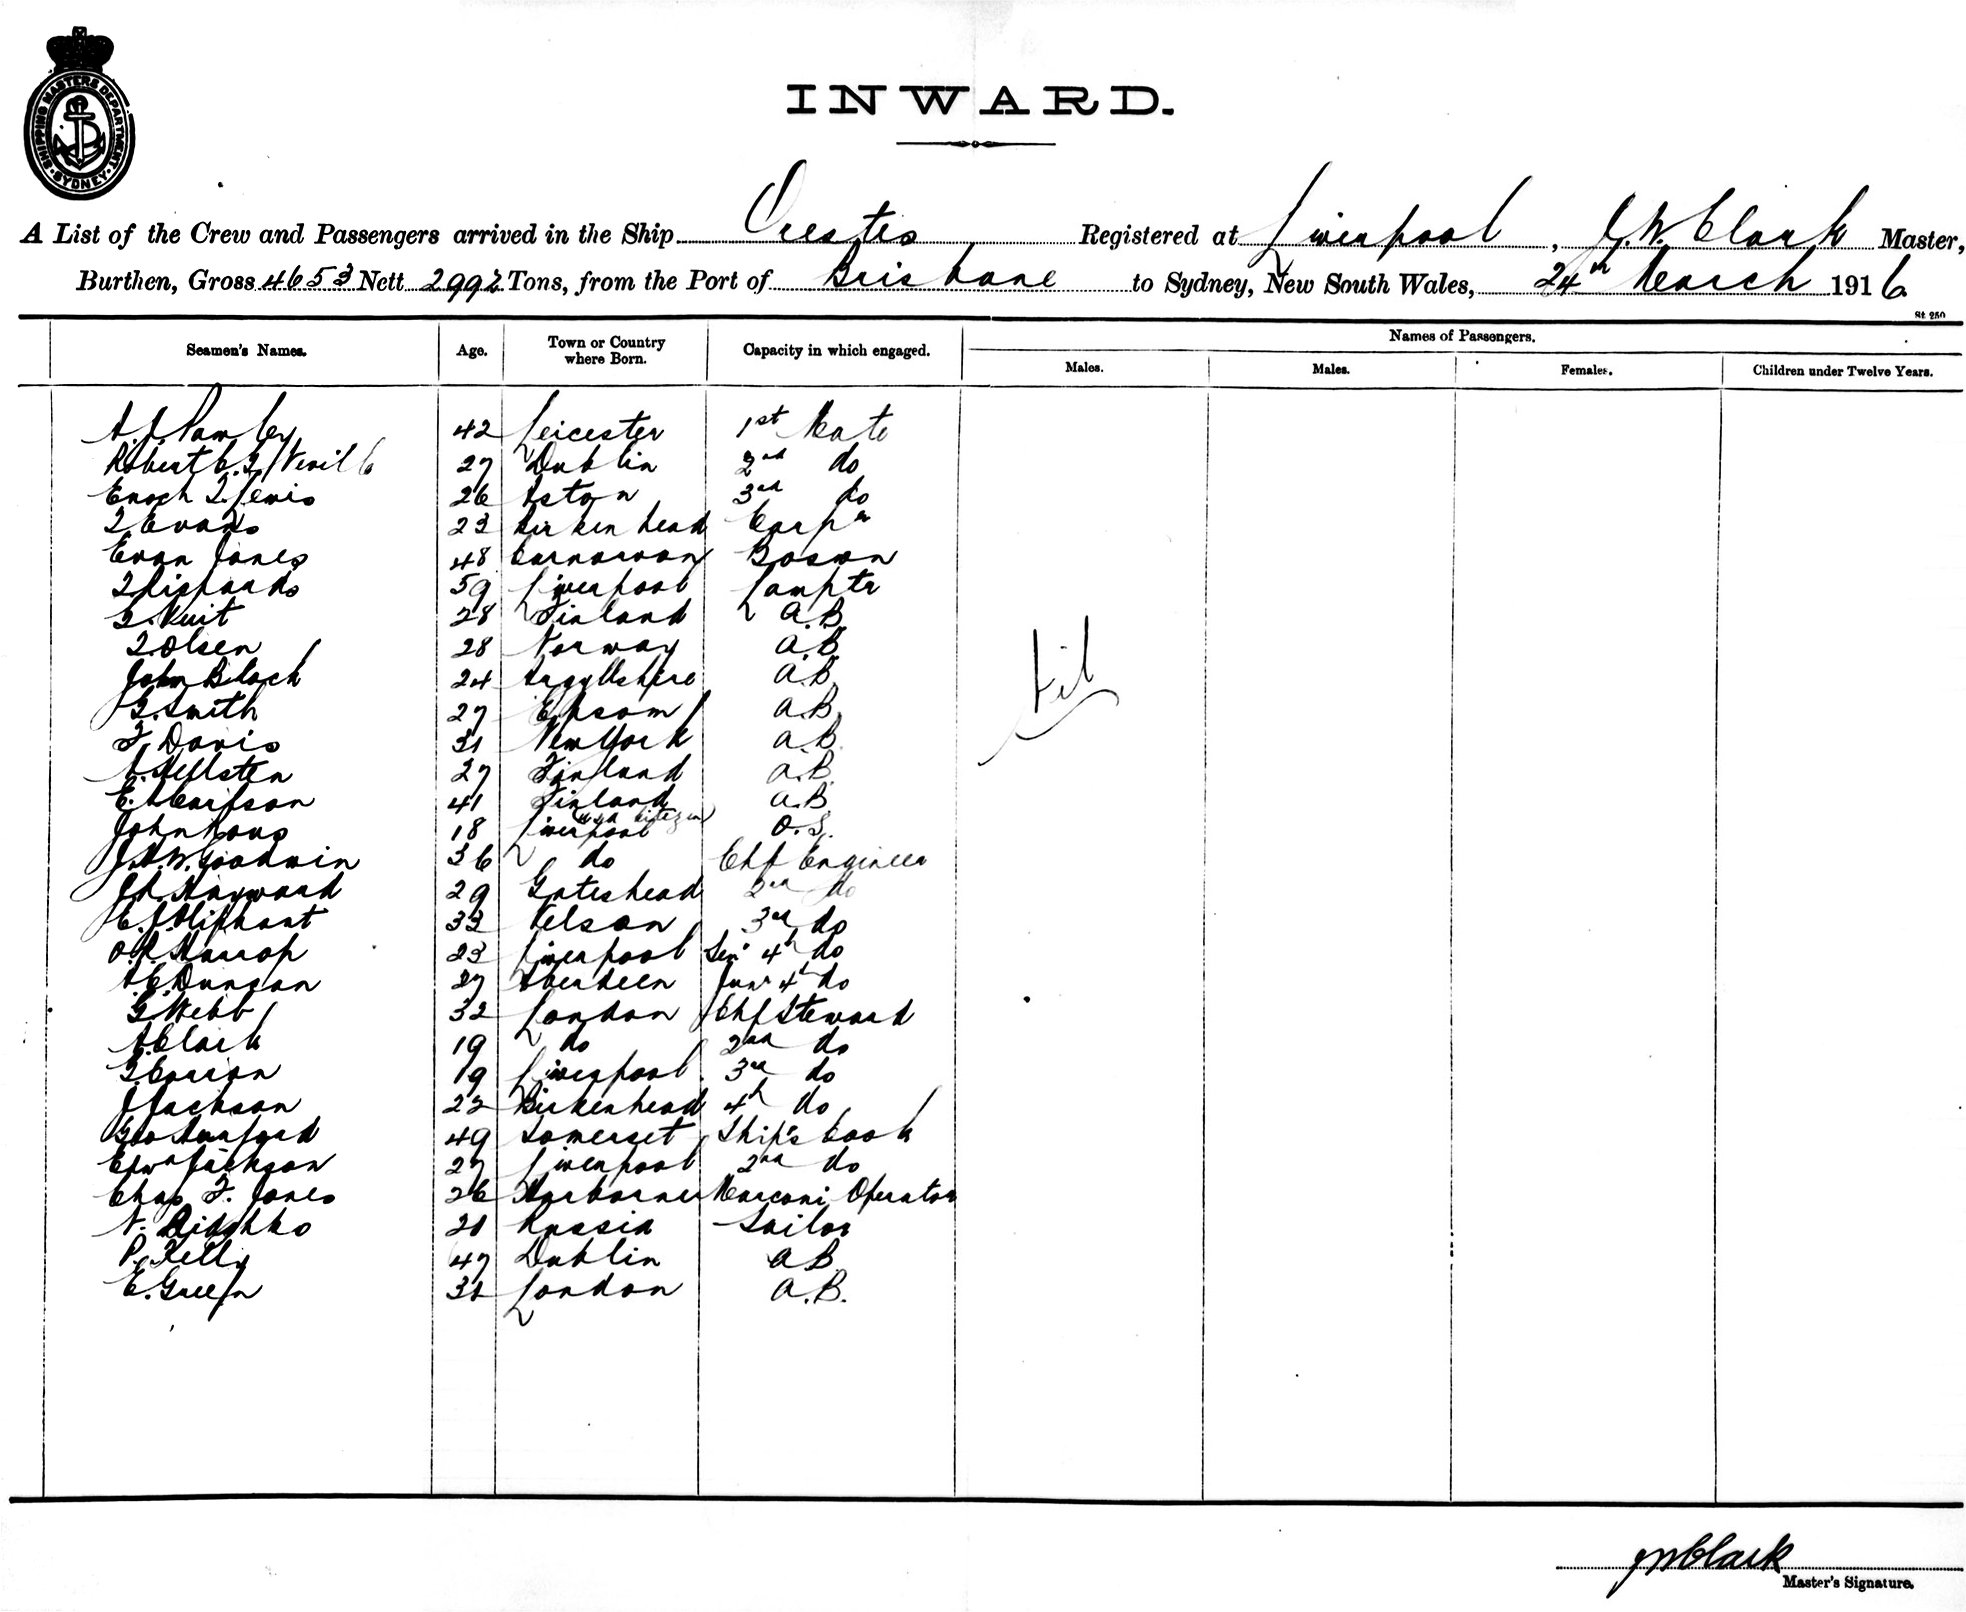 SHIPPING MASTERS DEPARTMENT
SYDNEY
INWARD.
A List of the Crew and Passengers arrived in the Ship Orestes Registered at Liverpool, J. W. Clark Master,
Burthen, Gross 4653 Nett 2992 Tons, from the Port of Brisbane to Sydney, New South Wales, 24th March 1916
St 250
Seamen's Names. Age. Town or Country where Born. Capacity in which engaged. Names of Passengers.
Males. Males. Females. Children under Twelve Years.
42 Leicester 1st Mate
Robert 27 Dublin 2nd do
Enoch T. Lewis 26 Aston 3rd do
T. Evans 23 Birkenhead Carpr
Evan Jones 48 Carnarvon Boswn
59 Liverpool Lamptr
28 Finland A.B.
T. Olsen 28 Norway A.B.
John Black 24 Argyllshire A.B.
G. Smith 27 Epsom A.B.
F. Davis 31 New York A.B.
A. Hellsten 27 Finland A.B.
41 Finland A.B.
USA Citizen
John 18 Liverpool O.S.
J.A.W. Goodwin 36 do Chf Engineer
J.A. Hayward 29 Gateshead 2nd do
C.J. Oliphant 33 Nelson 3rd do
O.R. Harrop 23 Liverpool Senr 4th do
A.C. Duncan 27 Aberdeen Junr 4th do
G. Webb 32 London Chf Steward
A. Clark 19 do 2nd do
19 Liverpool 3rd do
J. Jackson 22 Birkenhead 4th do
Geo 49 Somerset Ship's Cook
Edwd Jackson 27 Liverpool 2nd do
Chas F. Jones 26 Harborne Marconi Operator
N. 21 Russia Sailor
P. Kelly 47 Dublin A.B.
E. Green 31 London A.B.
Nil
JWClark
Master's Signature.